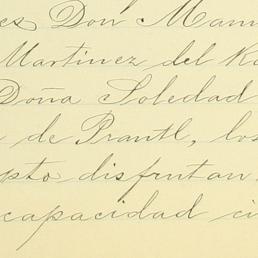 es Don Manu
Martinez del R
Doña Soledad
de Prantl, los
pto disfrutan
capacidad ci